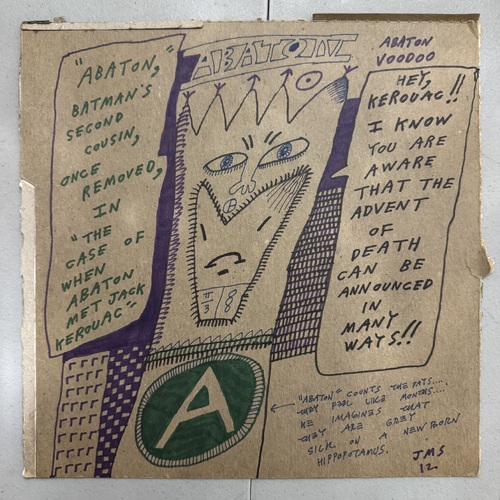 "ABATON,"
BATMAN'S
SECOND
COUSIN,
ONCE
REMOVED,
IN
"THE
CASE OF
WHEN
ABATON
MET JACK
KEROUAC"
ABATON
ABATON
VOODOO
HEY,
KEROUAC!!
I KNOW
YOU ARE
AWARE
THAT THE
ADVENT
OF
DEATH
CAN BE
ANNOUNCED
IN
MANY
WAYS!!
8
3
A
"ABATON" COUNTS THE DAYS....
THEY FEEL LIKE MONTHS....
HE IMAGINES THAT
THEY ARE GREY
SILK ON A NEWBORN
HIPPOPOTAMUS.
JMS
12